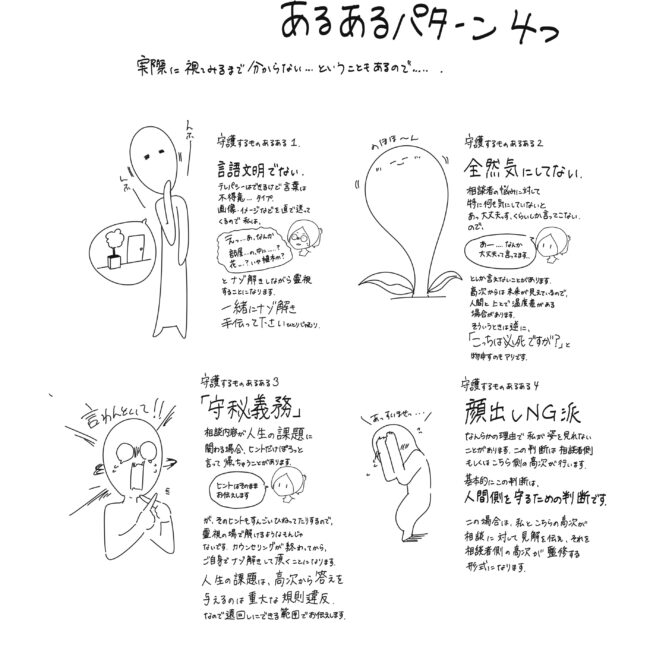 あるあるパターン4つ
実際に視てみるまで分からない…ということもあるので…….
守護するものあるある1.
言語文明でない.
テレパシーはできるけど言葉は
不得意…タイプ.
画像・イメージなどを直で送って
くるので私は、
えっ…あ、なんか
部屋…の中に……?
花…?いや植木か?
とナゾ解きしながら霊視
することになります.
一緒にナゾ解き
手伝って下さい
ヒョッ
ヒョッ
のほほ〜ん
守護するものあるある2
全然気にしてない.
相談者の悩みに対して
特に何も気にしていないと
あっ、大丈夫っすくらいしか言ってこない
ので、
あー……なんか
大丈夫って言ってます.
としか言えないことがあります.
高次からは未来が見えているので、
人間と上とで温度差がある
場合があります.
そういうときは逆に、
「こっちは必死ですが?」と
物申すのもアリです.
言わんといて!!
守護するものあるある3
「守秘義務」
相談内容が人生の課題に
関わる場合、ヒントだけぽろっと
言って帰っちゃうことがあります.
ヒントはそのまま
お伝えします
が、そのヒントもすんごいひねってたりするので、
霊視の場で解けるようなもんじゃ
ないです.カウンセリングが終わってから、
ご自身でナゾ解きして頂くことになります.
人生の課題は、高次から答えを
与えるのは重大な規則違反.
なので遠回しにできる範囲でお伝えします.
あっすいませっ…
守護するものあるある4
顔出しNG派
なんらかの理由で私が姿を見れない
ことがあります.この判断は相談者側
もしくはこちら側の高次が行います.
基本的にこの判断は、
人間側を守るための判断です.
この場合は、私とこちらの高次が
相談に対して見解を伝え、それを
相談者側の高次が監修する
形式になります.